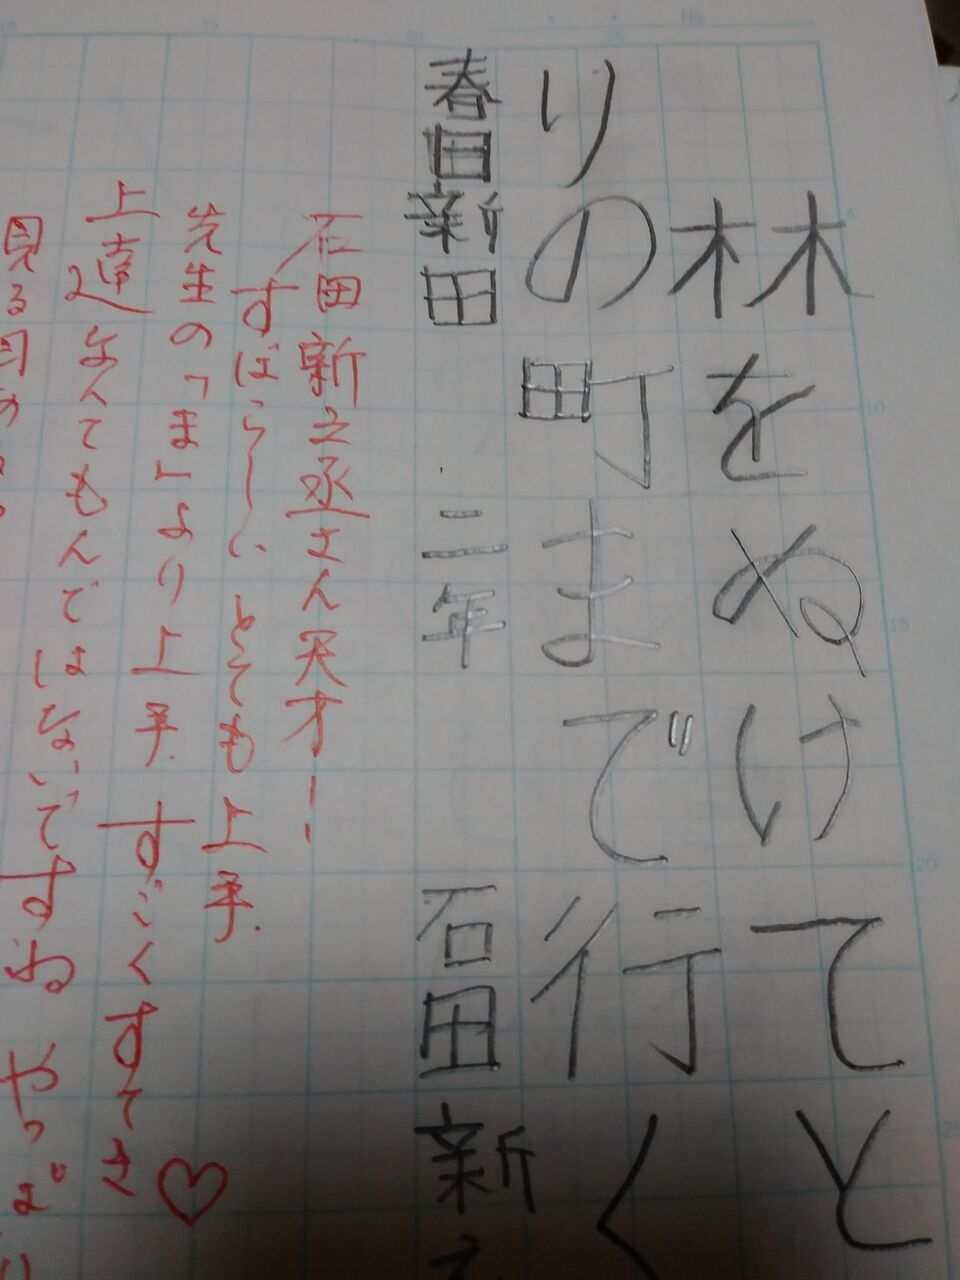 林をぬけてと
りの町まで行く
春田新田 二年 石田新
石田新之丞さん天才!
すばらしい とても上手
先生の「ま」より上手 すごくすてき
上達なんてもんではないですね
見る目 やっぱり
No.
20
25
5
10
15
20
25